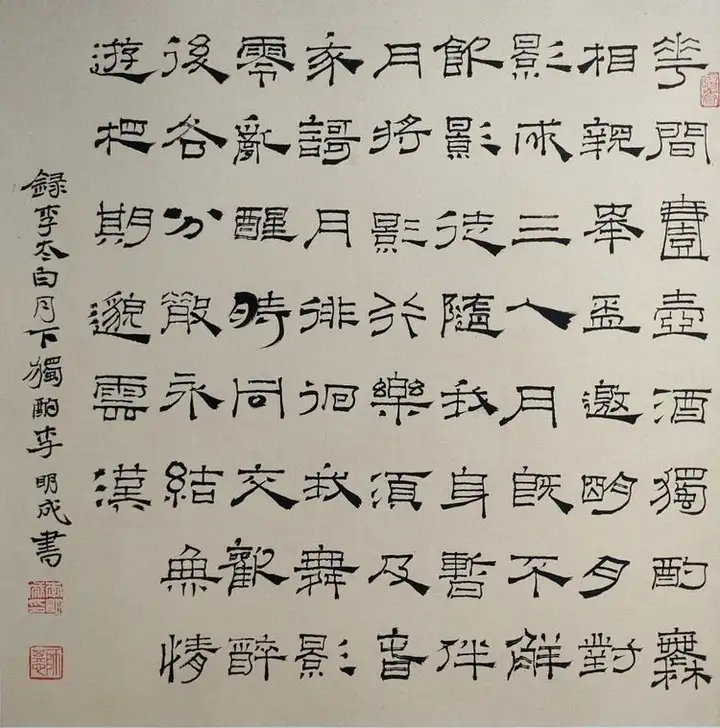 華間壹壺酒獨酌無
相親舉盃邀明月對
影成三人月既不解
飲影徒隨我身暫伴
月將影行樂須及春
我謌月徘徊我舞影
零亂醒時同交歡醉
後各分散永結無情
遊相期邈雲漢
録李太白月下獨酌李明成書